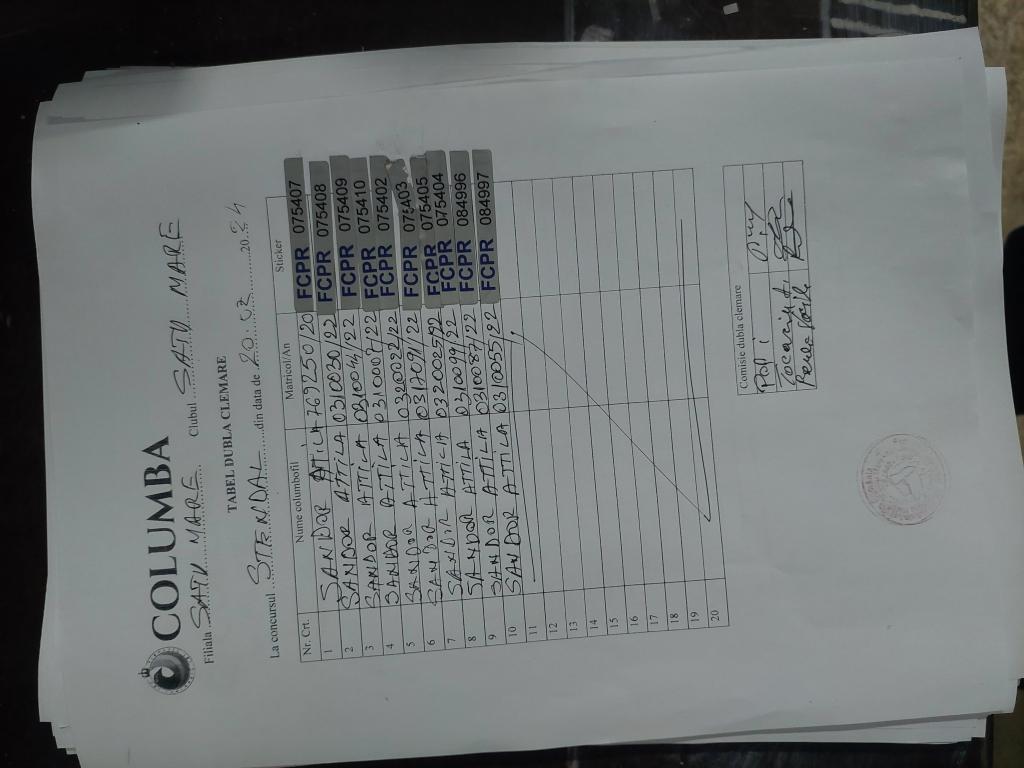 COLUMBA
Filiala SATU MARE Clubul SATU MARE
TABEL DUBLA CLEMARE
La concursul STENDAL din data de 20.03.2024
Nr. Crt. Nume columbofil Matricol/An Sticker
1 SANDOR ATTILA 4769250/20 FCPR 075407
2 SANDOR ATTILA 0310030/22 FCPR 075408
3 SANDOR ATTILA 0310044/22 FCPR 075409
4 SANDOR ATTILA 0310007/22 FCPR 075410
5 SANDOR ATTILA 0320092/22 FCPR 075402
6 SANDOR ATTILA 0317091/22 FCPR 075403
7 SANDOR ATTILA 0320025/22 FCPR 075405
8 SANDOR ATTILA 0310099/22 FCPR 075404
9 SANDOR ATTILA 0310087/22 FCPR 084996
10 SANDOR ATTILA 0310055/22 FCPR 084997
11
12
13
14
15
16
17
18
19
20
Comisie dubla clemare